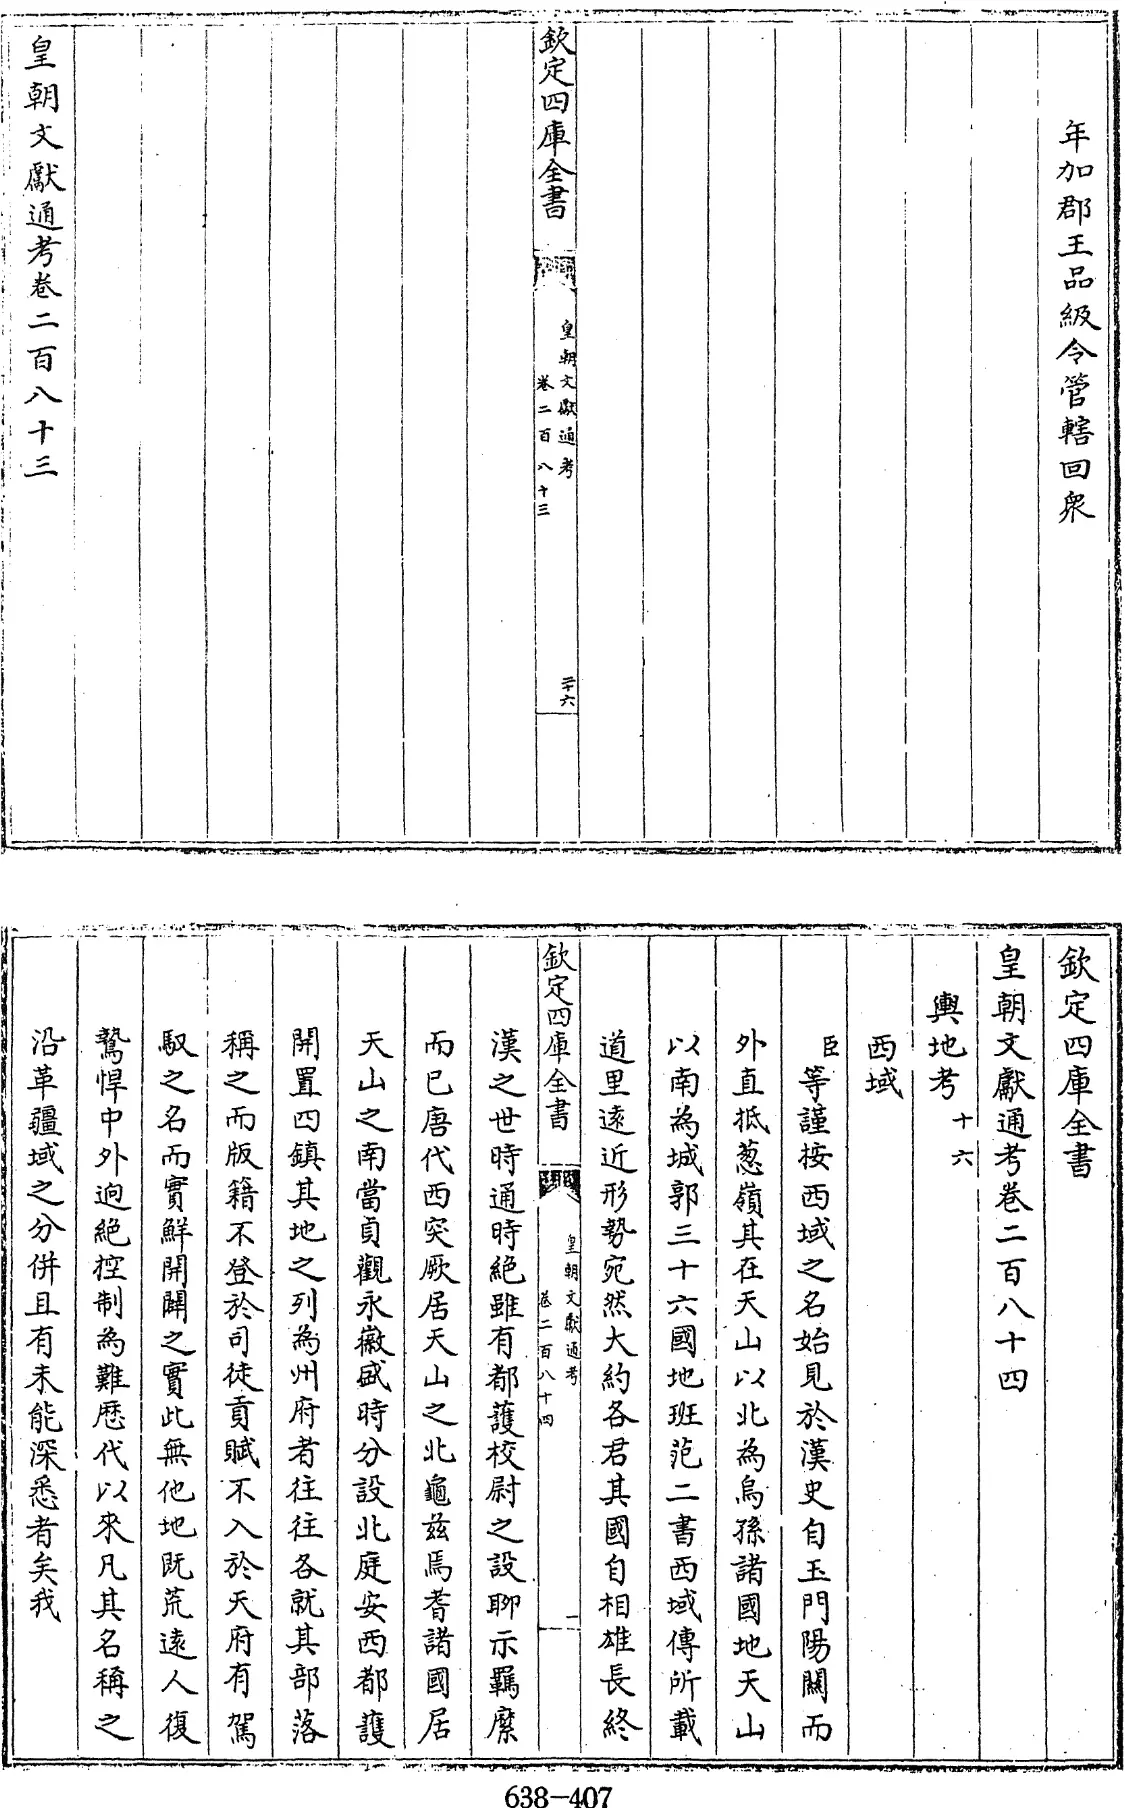 年加郡王品級令管轄回衆
欽定四庫全書
皇朝文獻通考
卷二百八十三
二十六
皇朝文獻通考卷二百八十三
欽定四庫全書
皇朝文獻通考卷二百八十四
輿地考十六
西域
臣等謹按西域之名始見於漢史自玉門陽關而
外直抵葱嶺其在天山以北為烏孫諸國地天山
以南為城郭三十六國地班范二書西域傳所載
道里逺近形勢宛然大約各君其國自相雄長終
欽定四庫全書
皇朝文獻通考
卷二百八十四
一
漢之世時通時絶雖有都護校尉之設聊示羈縻
而已唐代西突厥居天山之北龜兹焉耆諸國居
天山之南當貞觀永徽盛時分設北庭安西都護
開置四鎮其地之列為州府者往往各就其部落
稱之而版籍不登於司徒貢賦不入於天府有駕
馭之名而實鮮開闢之實此無他地既荒逺人復
驁悍中外逈絶控制為難歴代以來凡其名稱之
沿革疆域之分併且有未能深悉者矣我
638-407